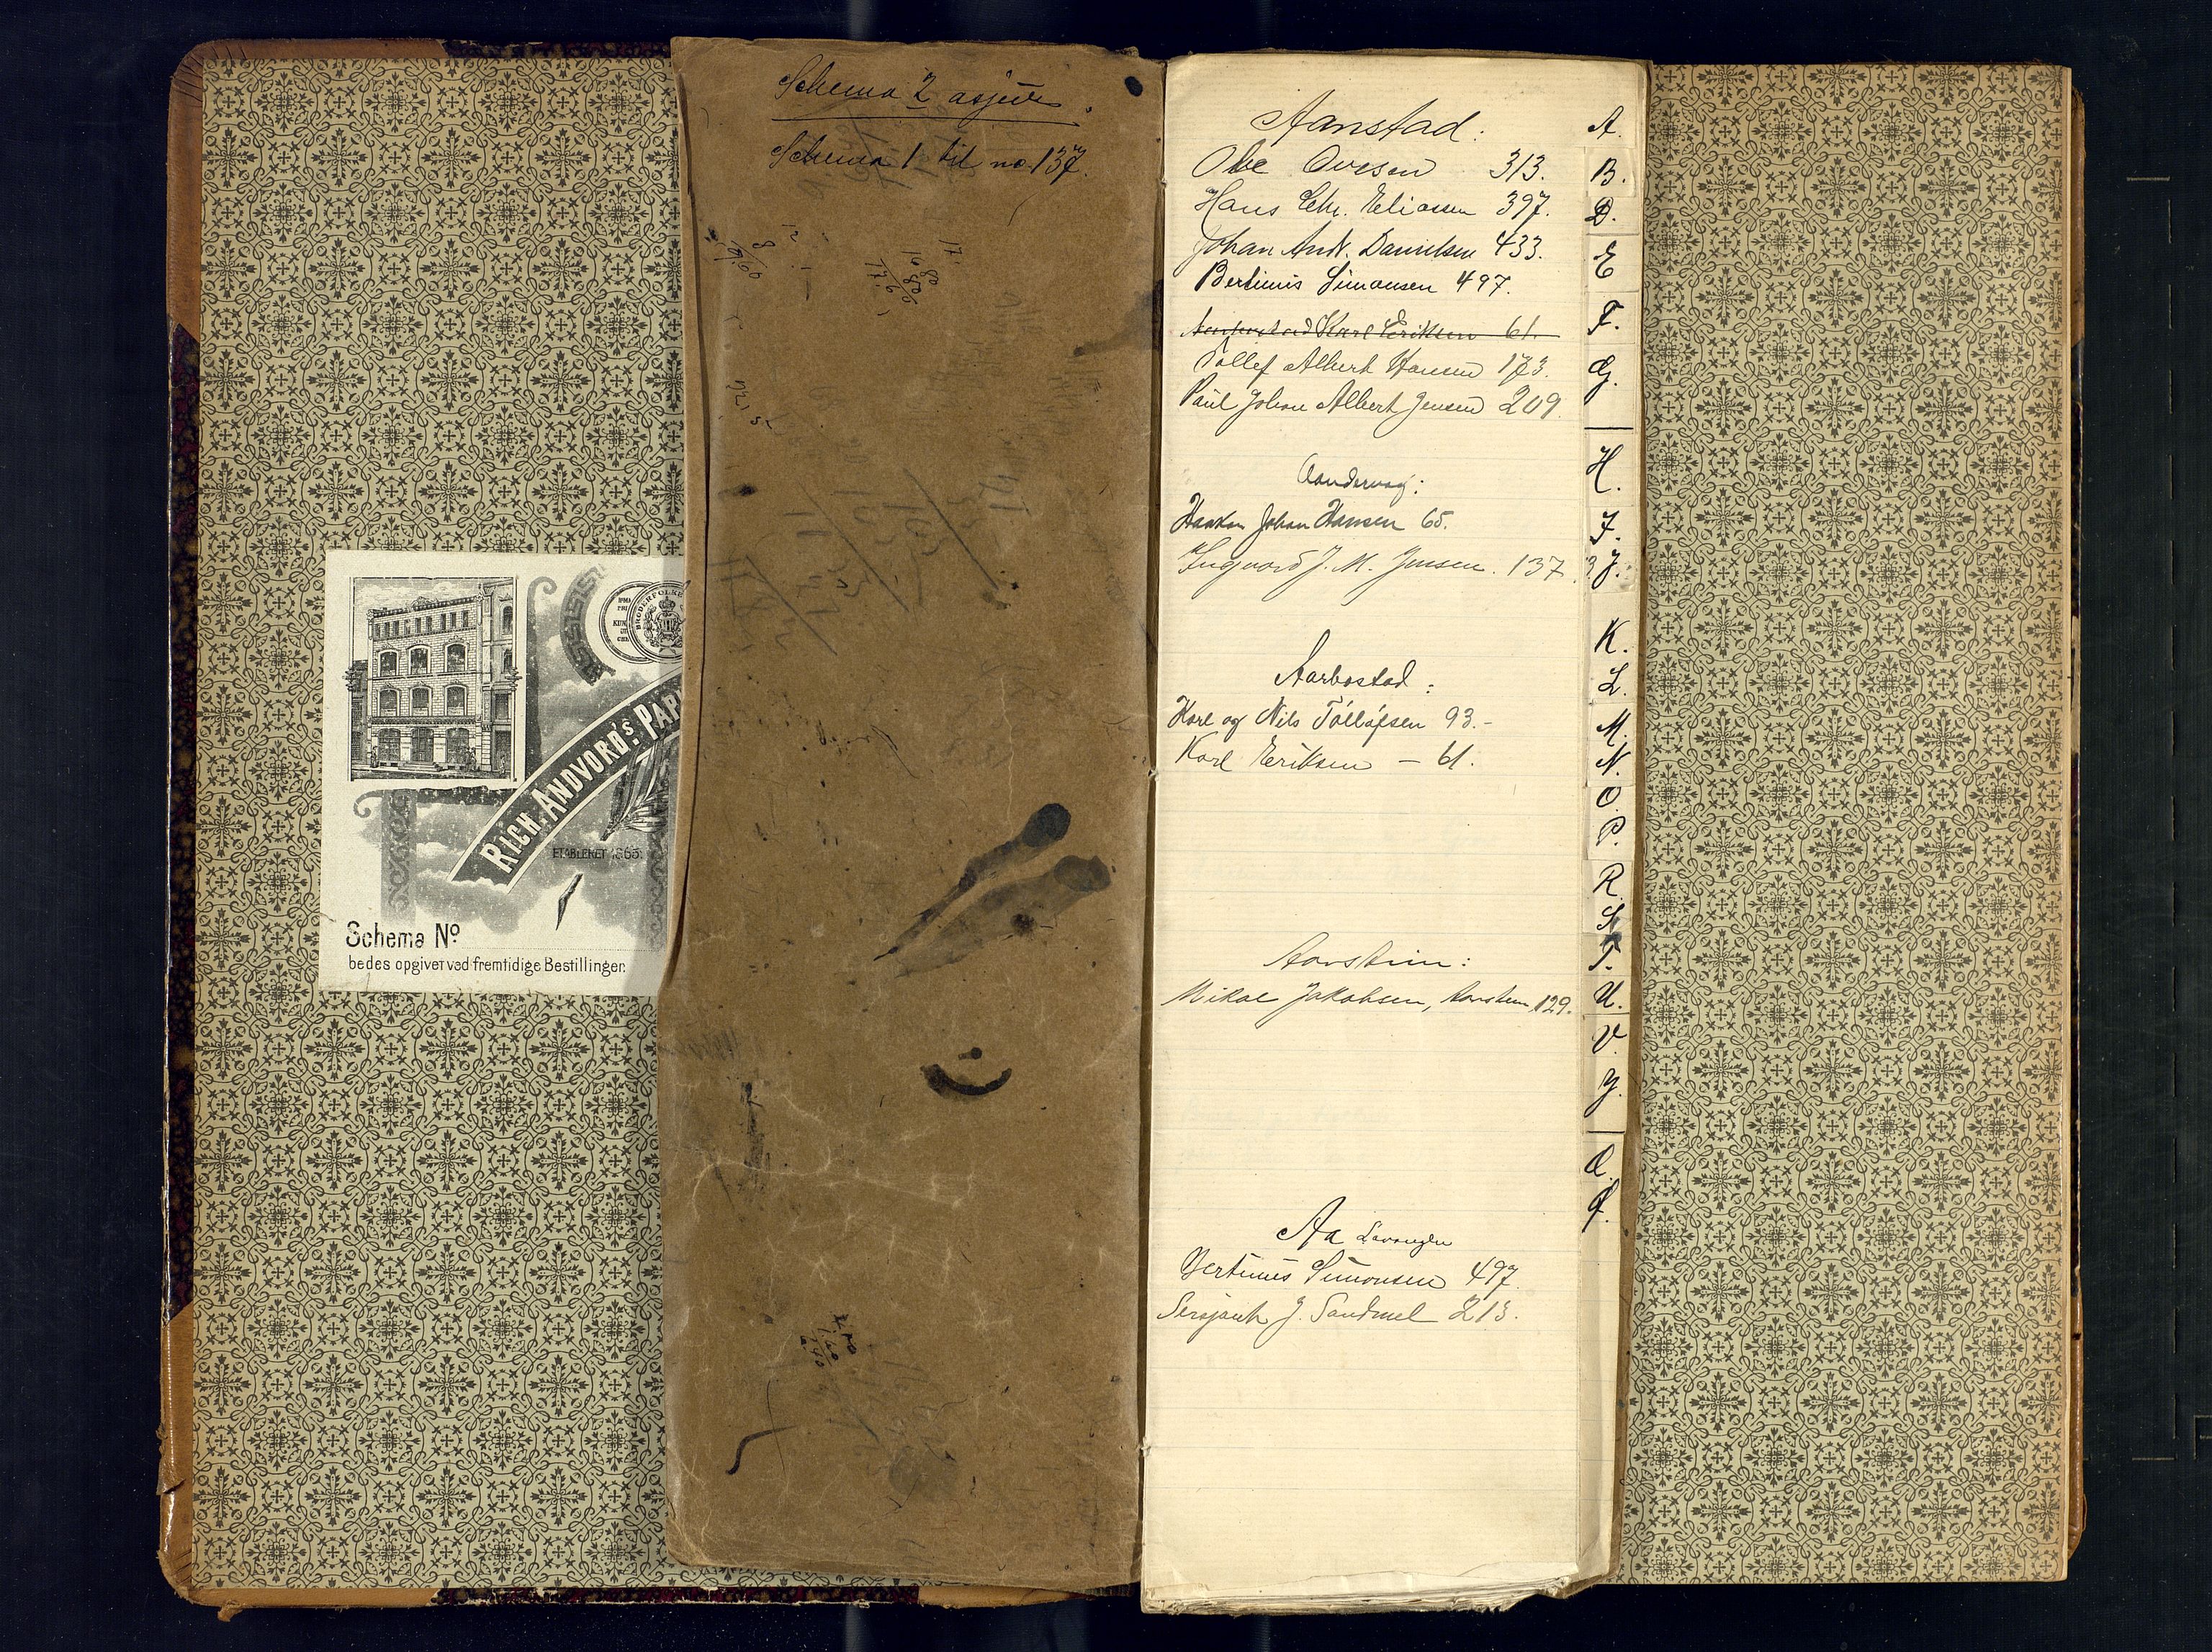 Schema 2 
Schema 1 til no. 137.
RICH. ANDVORD'S PAP
ETABLERET 1865.
Schema No
bedes opgivet ved fremtidige Bestillinger.
Aanstad:
Ole Ovesen 313.
Hans Chr. Eliassen 397.
Johan And. Danielsen 433.
Bertinus Simonsen 497.
Karl Eriksen 61.
Tollef Albert Hansen 173.
Paul Johan Albert Jensen 209.
Aandervag:
Haakon Johan Hansen 65.
Ingvard J. M. Jensen. 137.
Aarbostad:
Karl og Nils Tollofsen 93.-
Karl Eriksen - 61.
Aarstein:
Mikal Jakobsen, Aarstein, 129.
Aa Lavangen
Bertinus Simonsen 497.
Sersjant J. Sandmel 213.
A.
B.
D.
E
F.
G.
H.
I.
J.
K.
L.
M.
N.
O
P.
R
S
T.
U.
V.
Y.